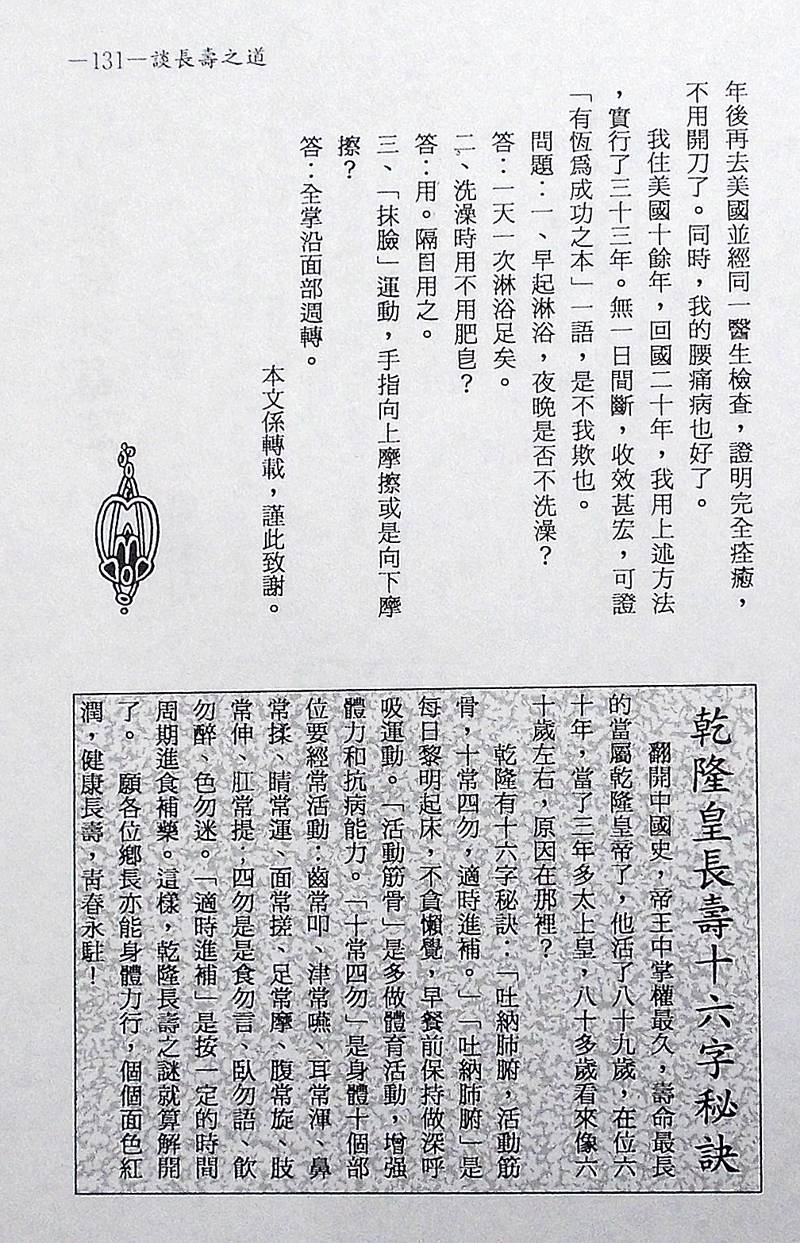 —131—談長壽之道
年後再去美國並經同一醫生檢查，證明完全痊癒，
不用開刀了。同時，我的腰痛病也好了。
我住美國十餘年，回國二十年，我用上述方法
，實行了三十三年。無一日間斷，收效甚宏，可證
「有恆爲成功之本」一語，是不我欺也。
問題：一、早起淋浴，夜晚是否不洗澡？
答：一天一次淋浴足矣。
二、洗澡時用不用肥皂？
答：用。隔日用之。
三、「抹臉」運動，手指向上摩擦或是向下摩
擦？
答：全掌沿面部週轉。
本文係轉載，謹此致謝。
乾隆皇長壽十六字秘訣
翻開中國史，帝王中掌權最久，壽命最長
的當屬乾隆皇帝了，他活了八十九歲，在位六
十年，當了三年多太上皇，八十多歲看來像六
十歲左右，原因在那裡？
乾隆有十六字秘訣：「吐納肺腑，活動筋
骨，十常四勿，適時進補。」「吐納肺腑」是
每日黎明起床，不貪懶覺，早餐前保持做深呼
吸運動。「活動筋骨」是多做體育活動，增强
體力和抗病能力。「十常四勿」是身體十個部
位要經常活動：齒常叩、津常嚥、耳常渾、鼻
常揉、睛常運、面常搓、足常摩、腹常旋、肢
常伸、肛常提；四勿是是食勿言、臥勿語、飲
勿醉、色勿迷。「適時進補」是按一定的時間
周期進食補藥。這樣，乾隆長壽之謎就算解開
了。　願各位鄉長亦能身體力行，個個面色紅
潤，健康長壽，靑春永駐！